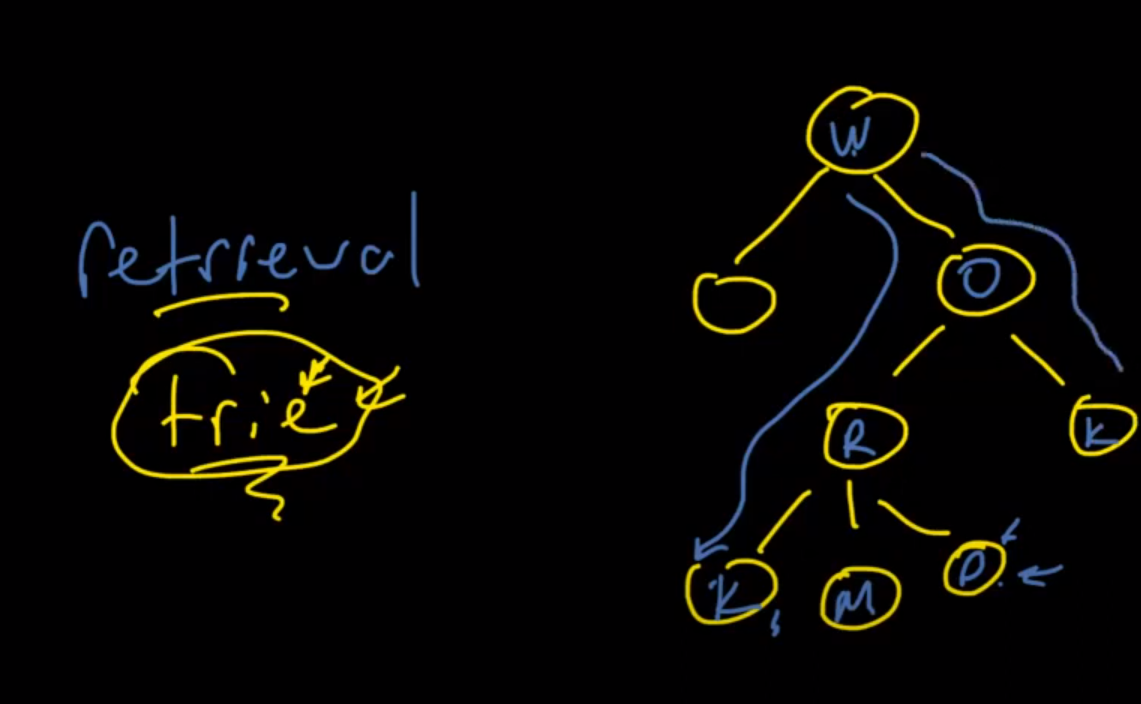 retrieval
trie
W
O
R
K
K
M
D